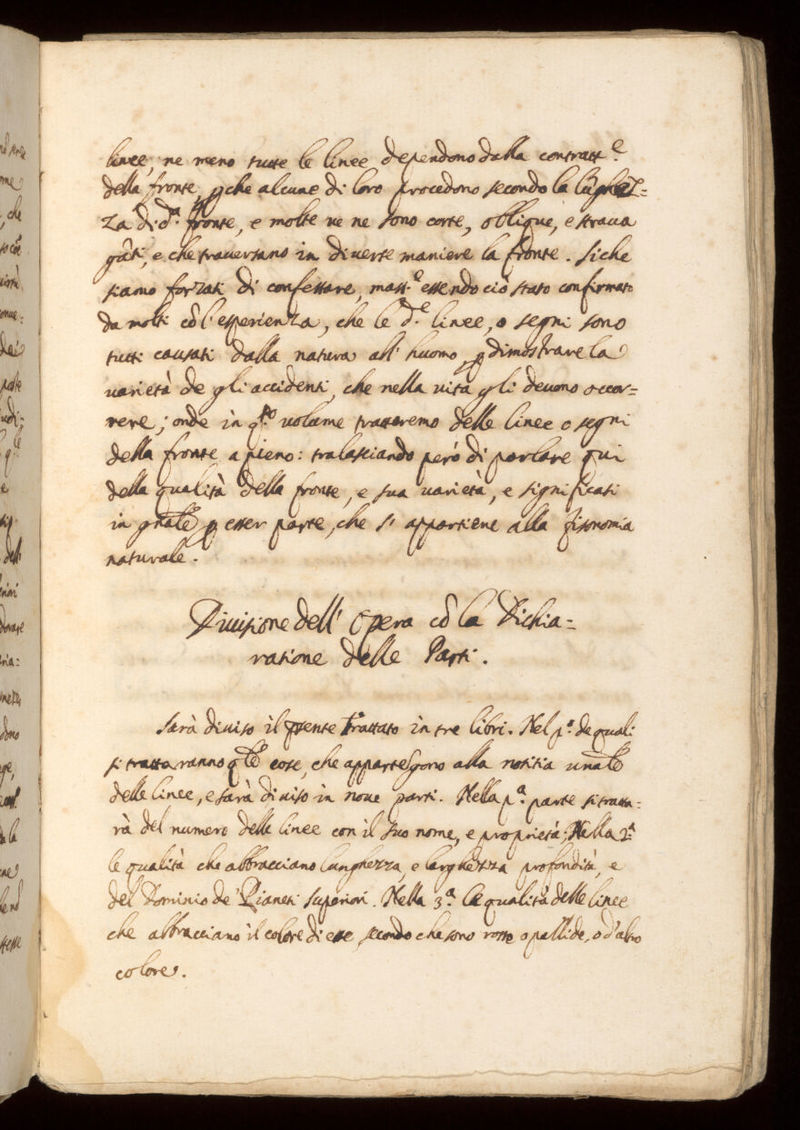 linee, ne meno tutte le linee dependono dalla contratt.e
della fronte, p che alcune di loro procedono secondo la lũghez-
za di d.a fronte, e molte ve ne sono corte, oblique, e strava
gãti, e che traversano in diverse maniere la fronte. Siche
siamo forzati di confessare, mass.e essendo ciò stato confirmato
da molti cõ l'esperienza, che le d.e linee, o segni sono
tutti causati dalla natura all' huomo, p dimostrare la
varietà de gli accidenti, che nella vita gli devono occor-
rere; onde in q.to volume tratteremo delle linee o segni
della fronte a pieno: tralasciando però di parlare qui
della qualità della fronte, e sua varietà, e significati
in gñale p esser parte, che s' appartiene alla fisonomia
naturale.
Divisione dell' Opera cõ la Dichia-
ratione delle Parti.
Sarà diviso il pñte Trattato in tre libri. Nel p.o de quali
si trattaranno q.lle cose, che appartẽgono alla notitia uñale
delle linee, e sarà diviso in nove parti. Nella p.a parte si tratta-
rà del numero delle linee con il suo nome, e proprietà; Nella 2.a
le qualità che abbracciano lunghezza, e larghezza profondità, e
del Dominio de' Pianeti superiori. Nella 3.a le qualità delle linee
che abbracciano il colore di esse, secondo che sono rosse o pallide, o d'altro
colore.